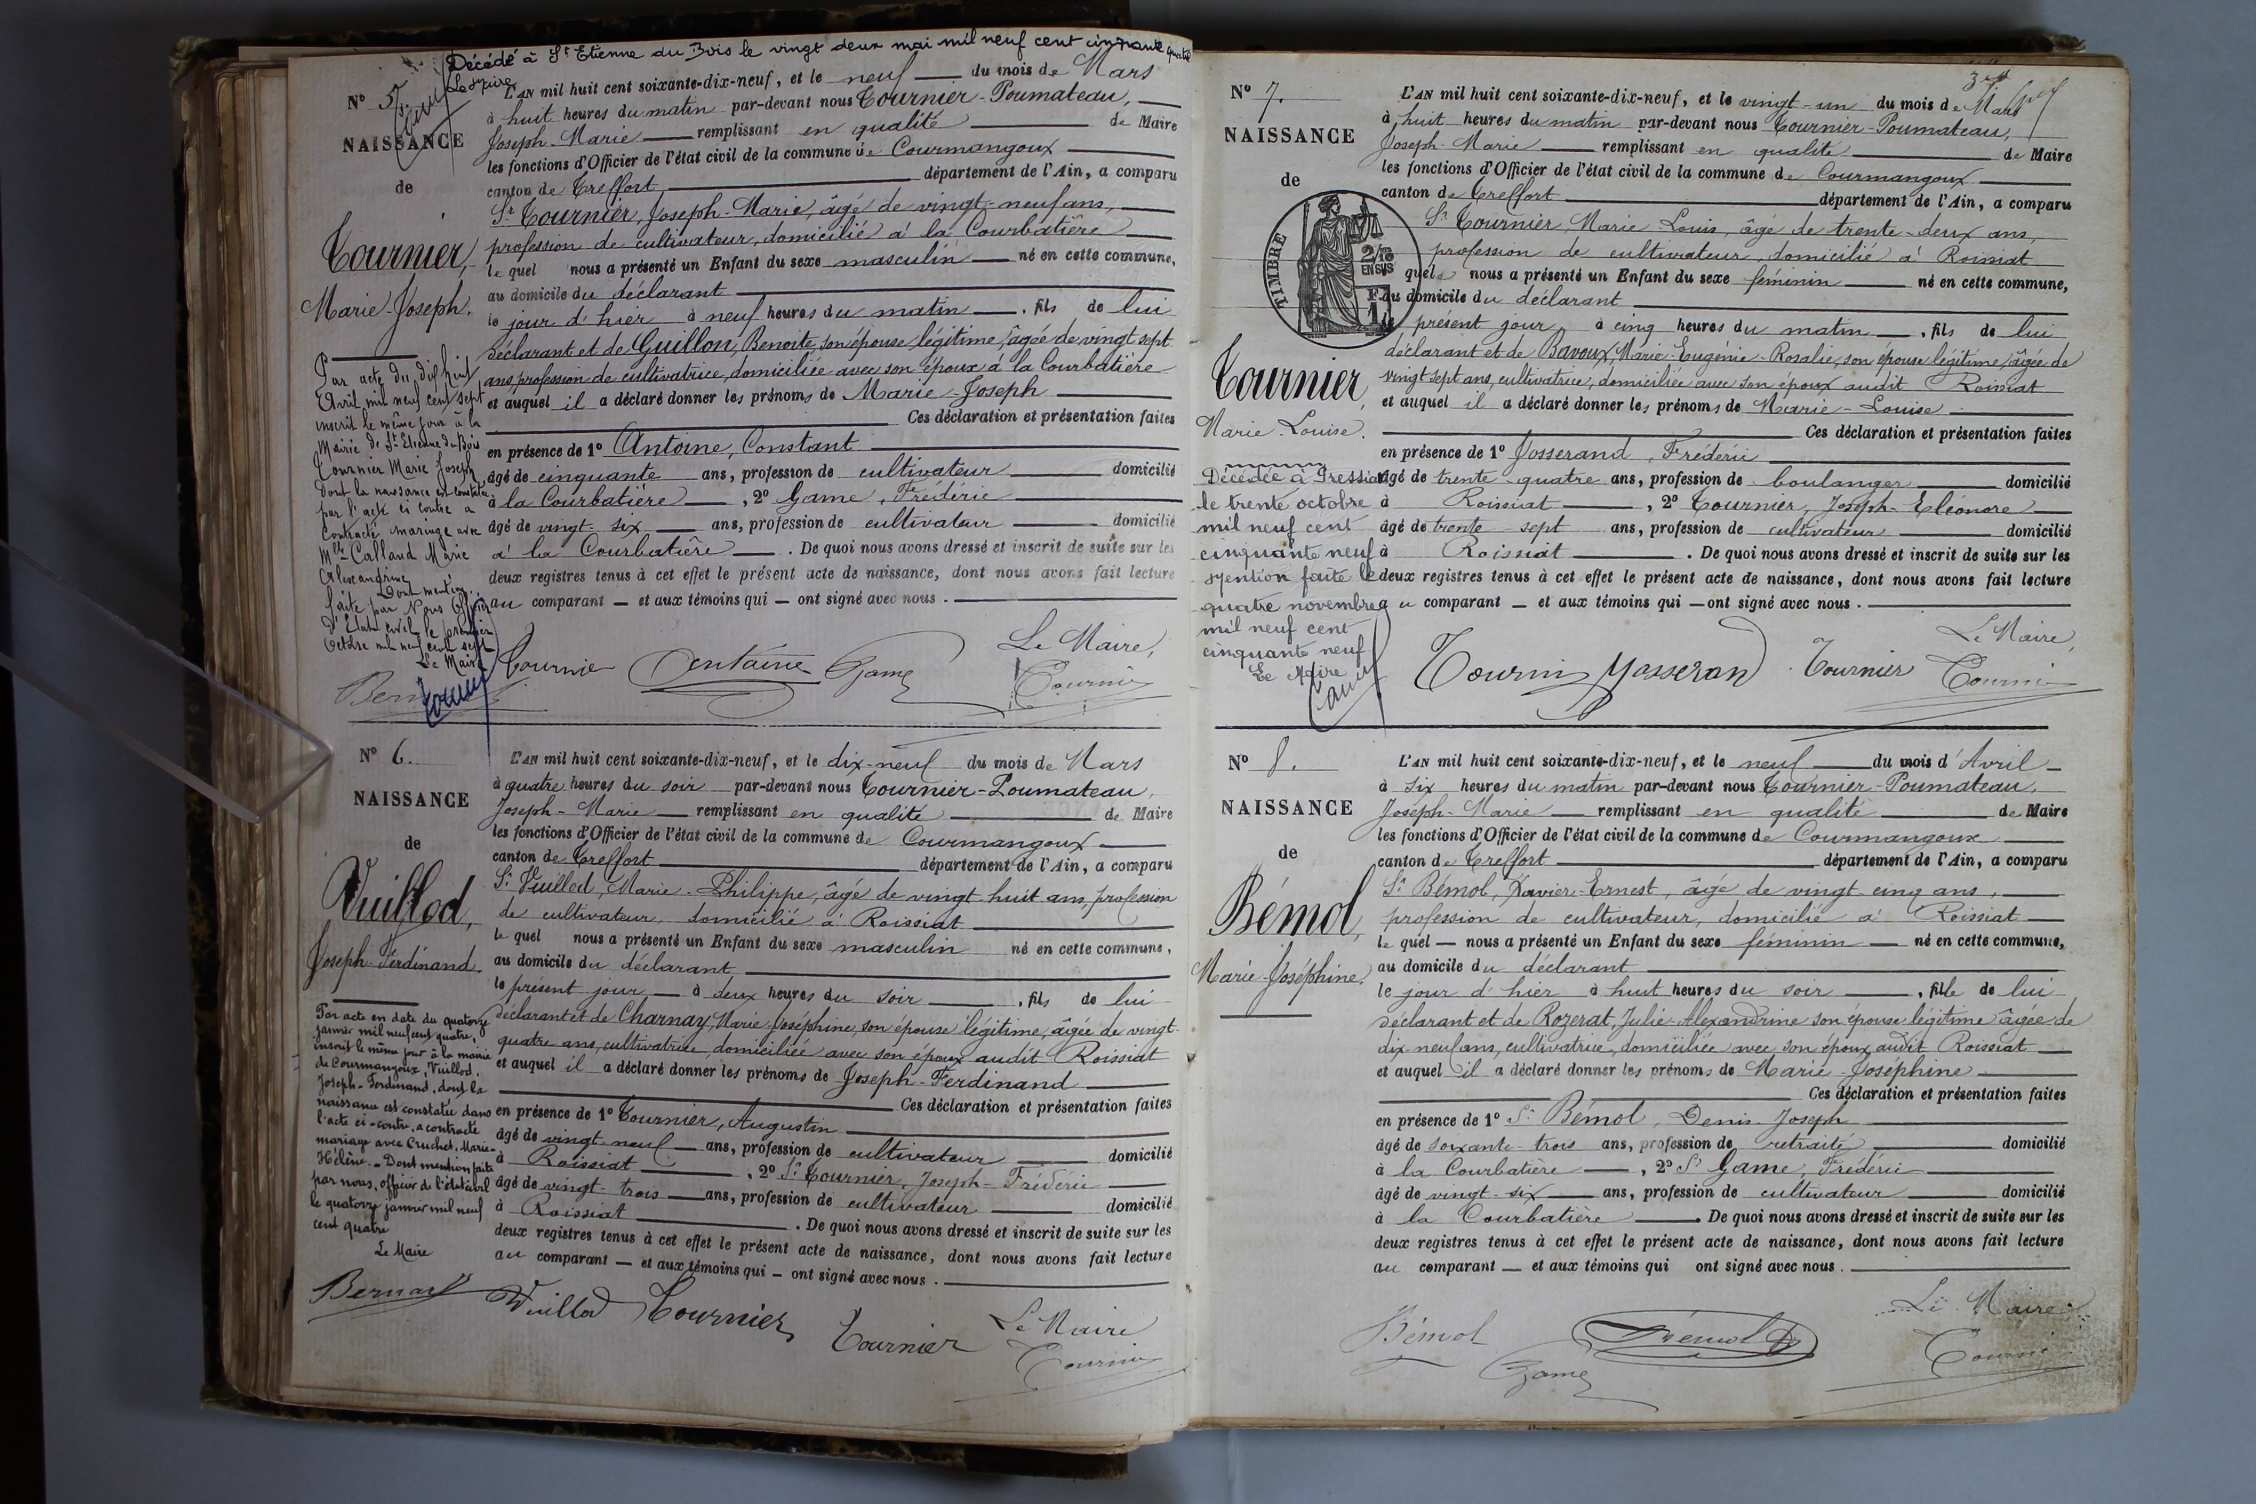 Décédé à St Etienne du Bois le vingt deux mai mil neuf cent cinquante quatre
Le Maire
N° 5.
NAISSANCE
de
Tournier,
Marie-Joseph.
Par acte du dix huit
Avril mil neuf cent sept
inscrit le même jour à la
Mairie de St Etienne du Bois
Tournier Marie Joseph
dont la naissance est constatée
par l'acte ci contre a
contracté mariage avec
Mlle Calland Marie
Alexandrine
Dont mention
faite par Nous Officier
d'Etat civil le premier
Octobre mil neuf cent sept
Le Maire
L'AN mil huit cent soixante-dix-neuf, et le neuf — du mois de Mars
à huit heures du matin par-devant nous Tournier-Poumateau, —
Joseph-Marie — remplissant en qualité — de Maire
les fonctions d'Officier de l'état civil de la commune de Courmangoux —
canton de Treffort, — département de l'Ain, a comparu
Sr Tournier, Joseph-Marie, âgé de vingt-neuf ans, —
profession de cultivateur, domicilié à la Courbatière —
le quel nous a présenté un Enfant du sexe masculin — né en cette commune,
au domicile du déclarant —
le jour d'hier à neuf heures du matin —, fils de lui
déclarant et de Guillon, Benoite, son épouse légitime, âgée de vingt sept
ans, profession de cultivatrice, domiciliée avec son époux à la Courbatière
et auquel il a déclaré donner les prénoms de Marie-Joseph —
— Ces déclaration et présentation faites
en présence de 1° Antoine, Constant —
âgé de cinquante ans, profession de cultivateur — domicilié
à la Courbatière —, 2° Game, Frédéric —
âgé de vingt-six — ans, profession de cultivateur — domicilié
à la Courbatière —. De quoi nous avons dressé et inscrit de suite sur les
deux registres tenus à cet effet le présent acte de naissance, dont nous avons fait lecture
au comparant — et aux témoins qui — ont signé avec nous. —
Le Maire,
Tournier Antoine Game Tournier
N° 6.
NAISSANCE
de
Vuillod,
Joseph-Ferdinand.
Par acte en date du quatorze
janvier mil neuf cent quatre,
inscrit le même jour à la mairie
de Courmangoux, Vuillod,
Joseph-Ferdinand, dont la
naissance est constatée dans
l'acte ci-contre, a contracté
mariage avec Cruchet, Marie-
Hélène. - Dont mention faite
par nous, officier de l'état civil
le quatorze janvier mil neuf
cent quatre
Le Maire
L'AN mil huit cent soixante-dix-neuf, et le dix-neuf du mois de Mars
à quatre heures du soir par-devant nous Tournier-Poumateau,
Joseph-Marie — remplissant en qualité — de Maire
les fonctions d'Officier de l'état civil de la commune de Courmangoux —
canton de Treffort — département de l'Ain, a comparu
Sr Vuillod, Marie-Philippe, âgé de vingt huit ans, profession
de cultivateur, domicilié à Roissiat —
le quel nous a présenté un Enfant du sexe masculin né en cette commune,
au domicile du déclarant —
le présent jour — à deux heures du soir —, fils de lui
déclarant et de Charnay, Marie-Joséphine, son épouse légitime, âgée de vingt-
quatre ans, cultivatrice, domiciliée avec son époux audit Roissiat
et auquel il a déclaré donner les prénoms de Joseph-Ferdinand —
— Ces déclaration et présentation faites
en présence de 1° Tournier, Augustin —
âgé de vingt neuf — ans, profession de cultivateur — domicilié
à Roissiat —, 2° Sr Tournier, Joseph-Frédéric —
âgé de vingt-trois — ans, profession de cultivateur — domicilié
à Roissiat —. De quoi nous avons dressé et inscrit de suite sur les
deux registres tenus à cet effet le présent acte de naissance, dont nous avons fait lecture
au comparant — et aux témoins qui — ont signé avec nous. —
Le Maire
Vuillod Tournier Tournier Tournier
N° 7.
NAISSANCE
de
TIMBRE
2/10
EN SUS
Tournier,
Marie-Louise.
Décédée à Pressiat
le trente octobre
mil neuf cent
cinquante neuf
Mention faite le
quatre novembre
mil neuf cent
cinquante neuf
Le Maire
L'AN mil huit cent soixante-dix-neuf, et le vingt-un du mois de Mars
à huit heures du matin par-devant nous Tournier-Poumateau,
Joseph-Marie — remplissant en qualité — de Maire
les fonctions d'Officier de l'état civil de la commune de Courmangoux —
canton de Treffort — département de l'Ain, a comparu
Sr Tournier, Marie Louis, âgé de trente-deux ans,
profession de cultivateur, domicilié à Roissiat
quel nous a présenté un Enfant du sexe féminin — né en cette commune,
au domicile du déclarant —
le présent jour, à cinq heures du matin —, fils de lui
déclarant et de Bavoux, Marie-Eugénie-Rosalie, son épouse légitime, âgée de
vingt sept ans, cultivatrice, domiciliée avec son époux audit Roissiat
et auquel il a déclaré donner les prénoms de Marie-Louise —
— Ces déclaration et présentation faites
en présence de 1° Josserand, Frédéric —
âgé de trente-quatre ans, profession de boulanger — domicilié
à Roissiat —, 2° Tournier, Joseph-Eléonore —
âgé de trente-sept ans, profession de cultivateur — domicilié
à Roissiat —. De quoi nous avons dressé et inscrit de suite sur les
deux registres tenus à cet effet le présent acte de naissance, dont nous avons fait lecture
au comparant — et aux témoins qui — ont signé avec nous. —
Le Maire,
Tournier Josserand Tournier Tournier
N° 8.
NAISSANCE
de
Bémol,
Marie-Joséphine.
L'AN mil huit cent soixante-dix-neuf, et le neuf — du mois d'Avril —
à six heures du matin par-devant nous Tournier-Poumateau,
Joseph-Marie — remplissant en qualité — de Maire
les fonctions d'Officier de l'état civil de la commune de Courmangoux —
canton de Treffort — département de l'Ain, a comparu
Sr Bémol, Xavier-Ernest, âgé de vingt cinq ans, —
profession de cultivateur, domicilié à Roissiat —
le quel — nous a présenté un Enfant du sexe féminin — né en cette commune,
au domicile du déclarant —
le jour d'hier à huit heures du soir —, fille de lui
déclarant et de Rozerat, Julie-Alexandrine son épouse légitime âgée de
dix-neuf ans, cultivatrice, domiciliée avec son époux audit Roissiat —
et auquel il a déclaré donner les prénoms de Marie-Joséphine —
— Ces déclaration et présentation faites
en présence de 1° Sr Bémol, Denis-Joseph —
âgé de soixante-trois ans, profession de retraité — domicilié
à la Courbatière —, 2° Sr Game, Frédéric —
âgé de vingt-six — ans, profession de cultivateur — domicilié
à la Courbatière —. De quoi nous avons dressé et inscrit de suite sur les
deux registres tenus à cet effet le présent acte de naissance, dont nous avons fait lecture
au comparant — et aux témoins qui ont signé avec nous. —
Le Maire
Bémol Game Bémol Tournier